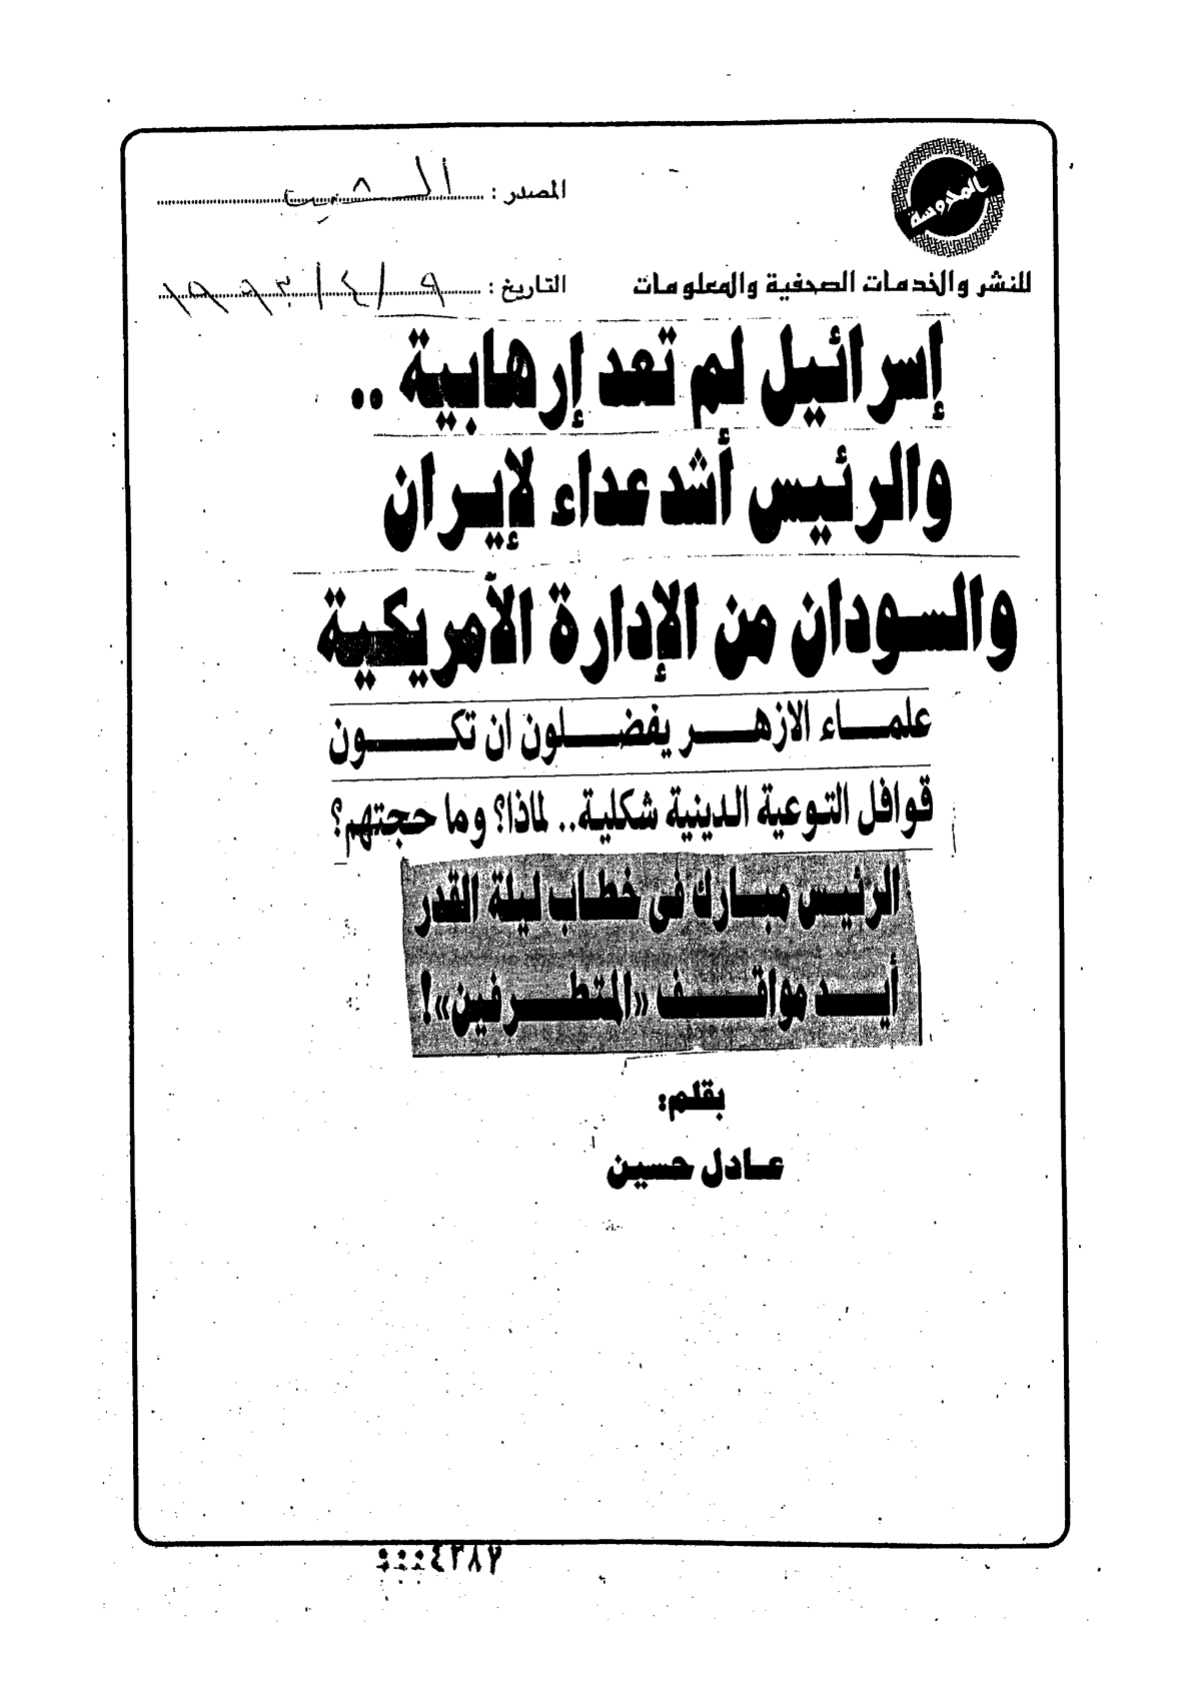 المحروسة
للنشر والخدمات الصحفية والمعلومات
المصدر : الشعب
التاريخ : ٩ / ٤ / ١٩٩٣
إسرائيل لم تعد إرهابية ..
والرئيس أشد عداء لإيران
والسودان من الإدارة الأمريكية
علماء الازهر يفضلون ان تكون
قوافل التوعية الدينية شكلية.. لماذا؟ وما حجتهم؟
الرئيس مبارك فى خطاب ليلة القدر
أيد مواقف «المتطرفين»!
بقلم:
عادل حسين